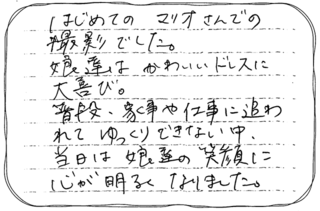 はじめての マリオさんでの
撮影でした。
娘達は かわいいドレスに
大喜び。
普段、家事や仕事に追わ
れて ゆっくりできない中、
当日は 娘達の 笑顔に
心が明るく なりました。